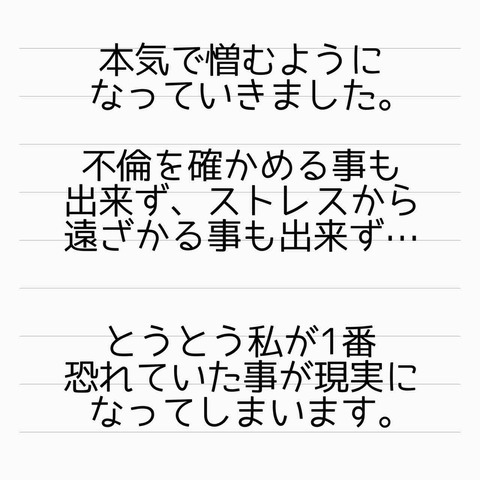 本気で憎むように
なっていきました。
不倫を確かめる事も
出来ず、ストレスから
遠ざかる事も出来ず…
とうとう私が1番
恐れていた事が現実に
なってしまいます。